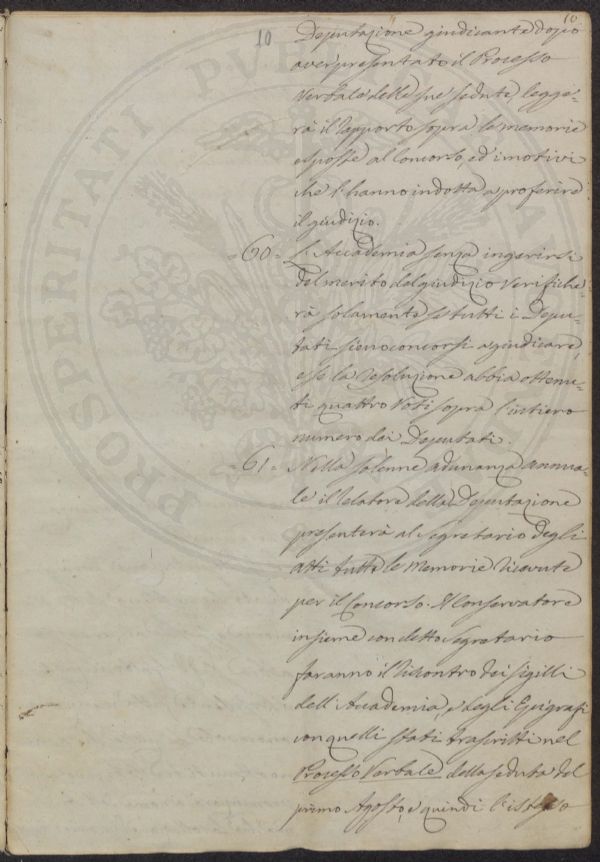 10
10
Deputazione giudicante dopo
aver presentato il Processo
Verbale delle sue sedute, legge-
rà il Rapporto sopra le memorie
esposte al Concorso, ed i motivi
che l'hanno indotta a proferire
il giudizio.
=60= L'Accademia senza ingerirsi
del merito del giudizio verifiche-
rà solamente se tutti i Depu-
tati sieno concorsi a giudicare,
e se la resoluzione abbia ottenu-
ti quattro Voti sopra l'intiero
numero dei Deputati.
=61= Nella solenne adunanza annua-
le il Relatore della Deputazione
presenterà al Segretario degli
atti tutte le Memorie ricevute
per il Concorso. Il Conservatore
insieme con detto Segretario
faranno il riscontro dei sigilli
dell'Accademia, e degli Epigrafi
con quelli stati trascritti nel
Processo Verbale della seduta del
primo Agosto, e quindi l'istesso
PROSPERITATI PUBLICAE